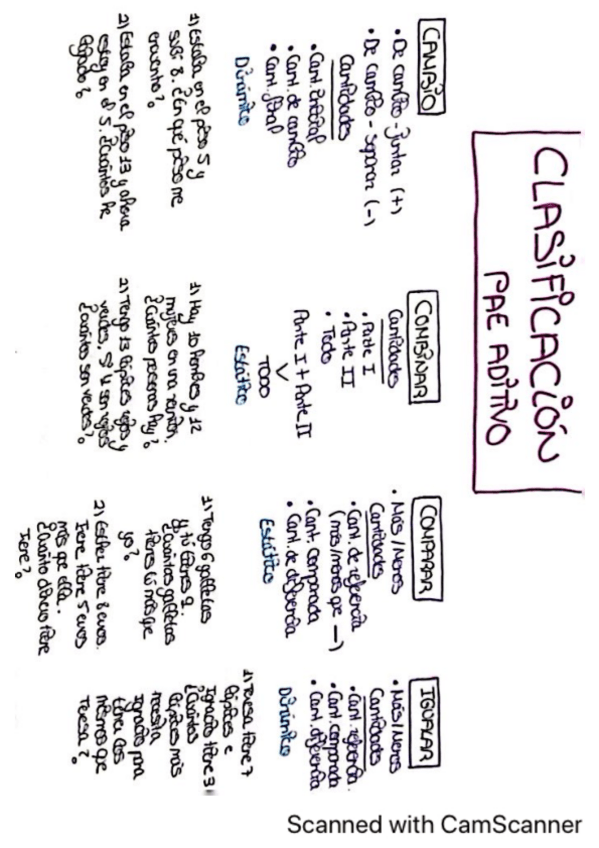 CLASIFICACIÓN
PAE ADITIVO
CAMBIO
• De cambio - juntar (+)
• De cambio - separar (-)
Cantidades
• Cant. inicial
• Cant. de cambio
• Cant. final
Dinámico
1) Estaba en el piso 5 y
subí 8. ¿En qué piso me
encuentro?
2) Estaba en el piso 13 y ahora
estoy en el 5. ¿Cuántos he
bajado?
COMBINAR
Cantidades
• Parte I
• Parte II
• Todo
Parte I + Parte II
TODO
Estático
1) Hay 10 hombres y 12
mujeres en una reunión.
¿Cuántas personas hay?
2) Tengo 13 lápices rojos y
verdes, si 4 son rojos
¿cuántos son verdes?
COMPARAR
• Más / Menos
Cantidades
• Cant. de referencia
(más/menos que —)
• Cant. comparada
• Cant. de diferencia
Estático
1) Tengo 6 galletas
y tú tienes 9.
¿Cuántas galletas
tienes tú más que
yo?
2) Esther tiene 8 euros.
Irene tiene 5 euros
más que ella.
¿Cuánto dinero tiene
Irene?
IGUALAR
• Más/Menos
Cantidades
• Cant. referencia
• Cant. comparada
• Cant. diferencia
Dinámico
1) Teresa tiene 7
lápices e
Ignacio tiene 3
¿Cuántos
lápices más
necesita
Ignacio para
tener los
mismos que
Teresa?
Scanned with CamScanner